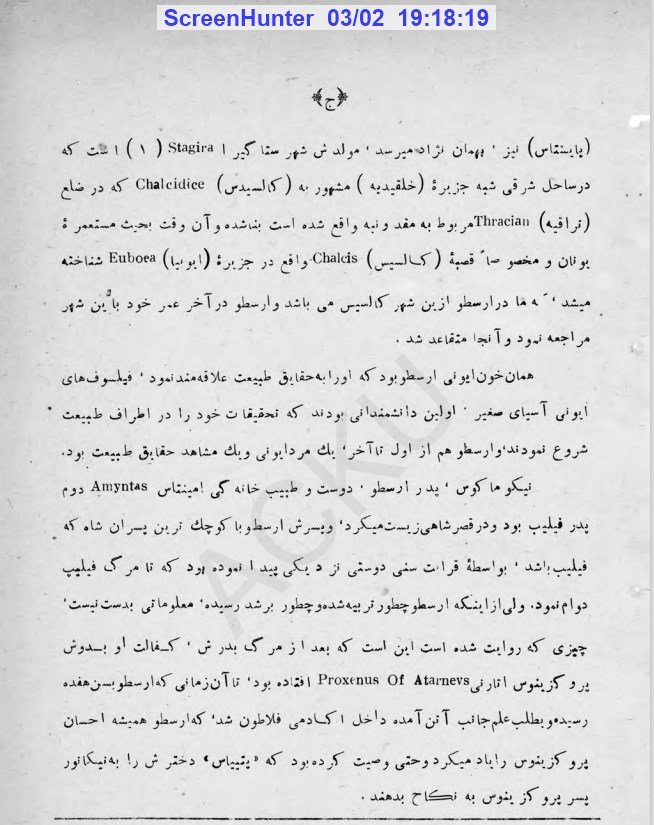 ScreenHunter 03/02 19:18:19
﴿ج﴾
(پایستقاس) نیز ، بهمان نژاد میرسد ، مولدش شهر ستاگیر ا Stagira (۱) است که
درساحل شرقی شبه جزیرهٔ (خلقیدیه) مشهور به (کالسیدس) Chalcidice که در ضلع
(تراقیه) Thracian مربوط به مقدونیه واقع شده است بناشده و آن وقت بحیث مستعمرهٔ
یونان و مخصوصاً قصبهٔ (کالسیس) Chalcis واقع در جزیرهٔ (ایوبیا) Euboea شناخته
میشد ، مادر ارسطو ازین شهر کالسیس می باشد وارسطو درآخر عمر خود باین شهر
مراجعه نمود و آنجا متقاعد شد .
همان خون ایونی ارسطو بود که اورا به حقایق طبیعت علاقه مند نمود ، فیلسوف های
ایونی آسیای صغیر ، اولین دانشمندانی بودند که تحقیقات خود را در اطراف طبیعت
شروع نمودند، وارسطو هم از اول تاآخر، یك مرد ایونی ویك مشاهد حقایق طبیعت بود.
نیکو ماکوس ، پدر ارسطو ، دوست و طبیب خانه گی امینتاس Amyntas دوم
پدر فیلیپ بود ودر قصر شاهی زیست میکرد، وپسرش ارسطو با کوچك ترین پسران شاه که
فیلیپ باشد ، بواسطهٔ قرابت سنی دوستی نزدیکی پیدا نموده بود که تا مرگ فیلیپ
دوام نمود. ولی از اینکه ارسطو چطور تربیه شده و چطور برشد رسیده، معلوماتی بدست نیست،
چیزی که روایت شده است این است که بعد از مرگ پدرش ، کفالت او بدوش
پروکزینوس اتارنی Proxenus Of Atarnevs افتاده بود، تاآن زمانی که ارسطو بسن هفده
رسیده و بطلب علم جانب آتن آمده داخل اکادمی فلاطون شد، که ارسطو همیشه احسان
پروکزینوس را یاد میکرد وحتی وصیت کرده بود که «پتییاس» دخترش را به نیکانور
پسر پروکزینوس به نکاح بدهند .
ACKU